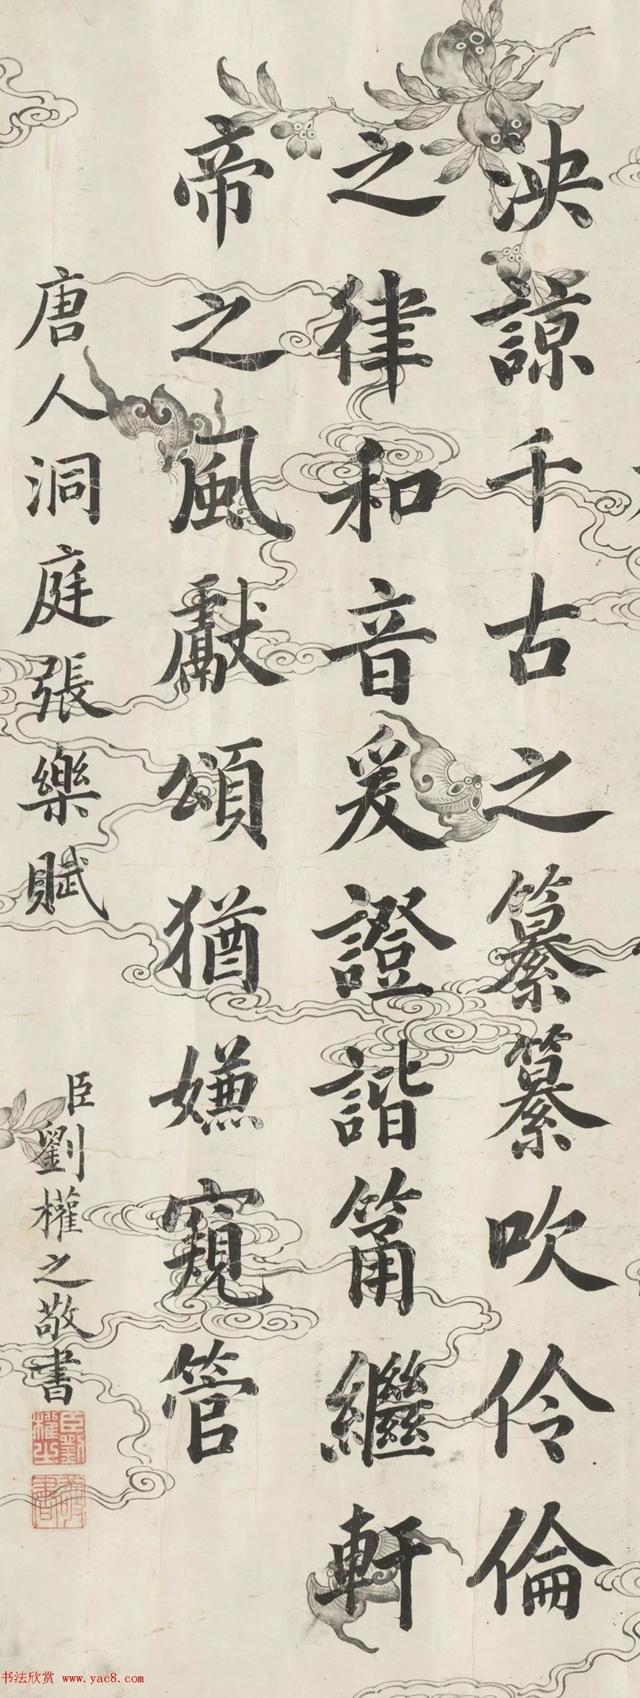 泱諒千古之纂纂吹伶倫
之律和音爰證諧筩繼軒
帝之風獻頌猶嫌窺管
唐人洞庭張樂賦
臣劉權之敬書
臣劉權之
敬書
书法欣赏 www.yac8.com